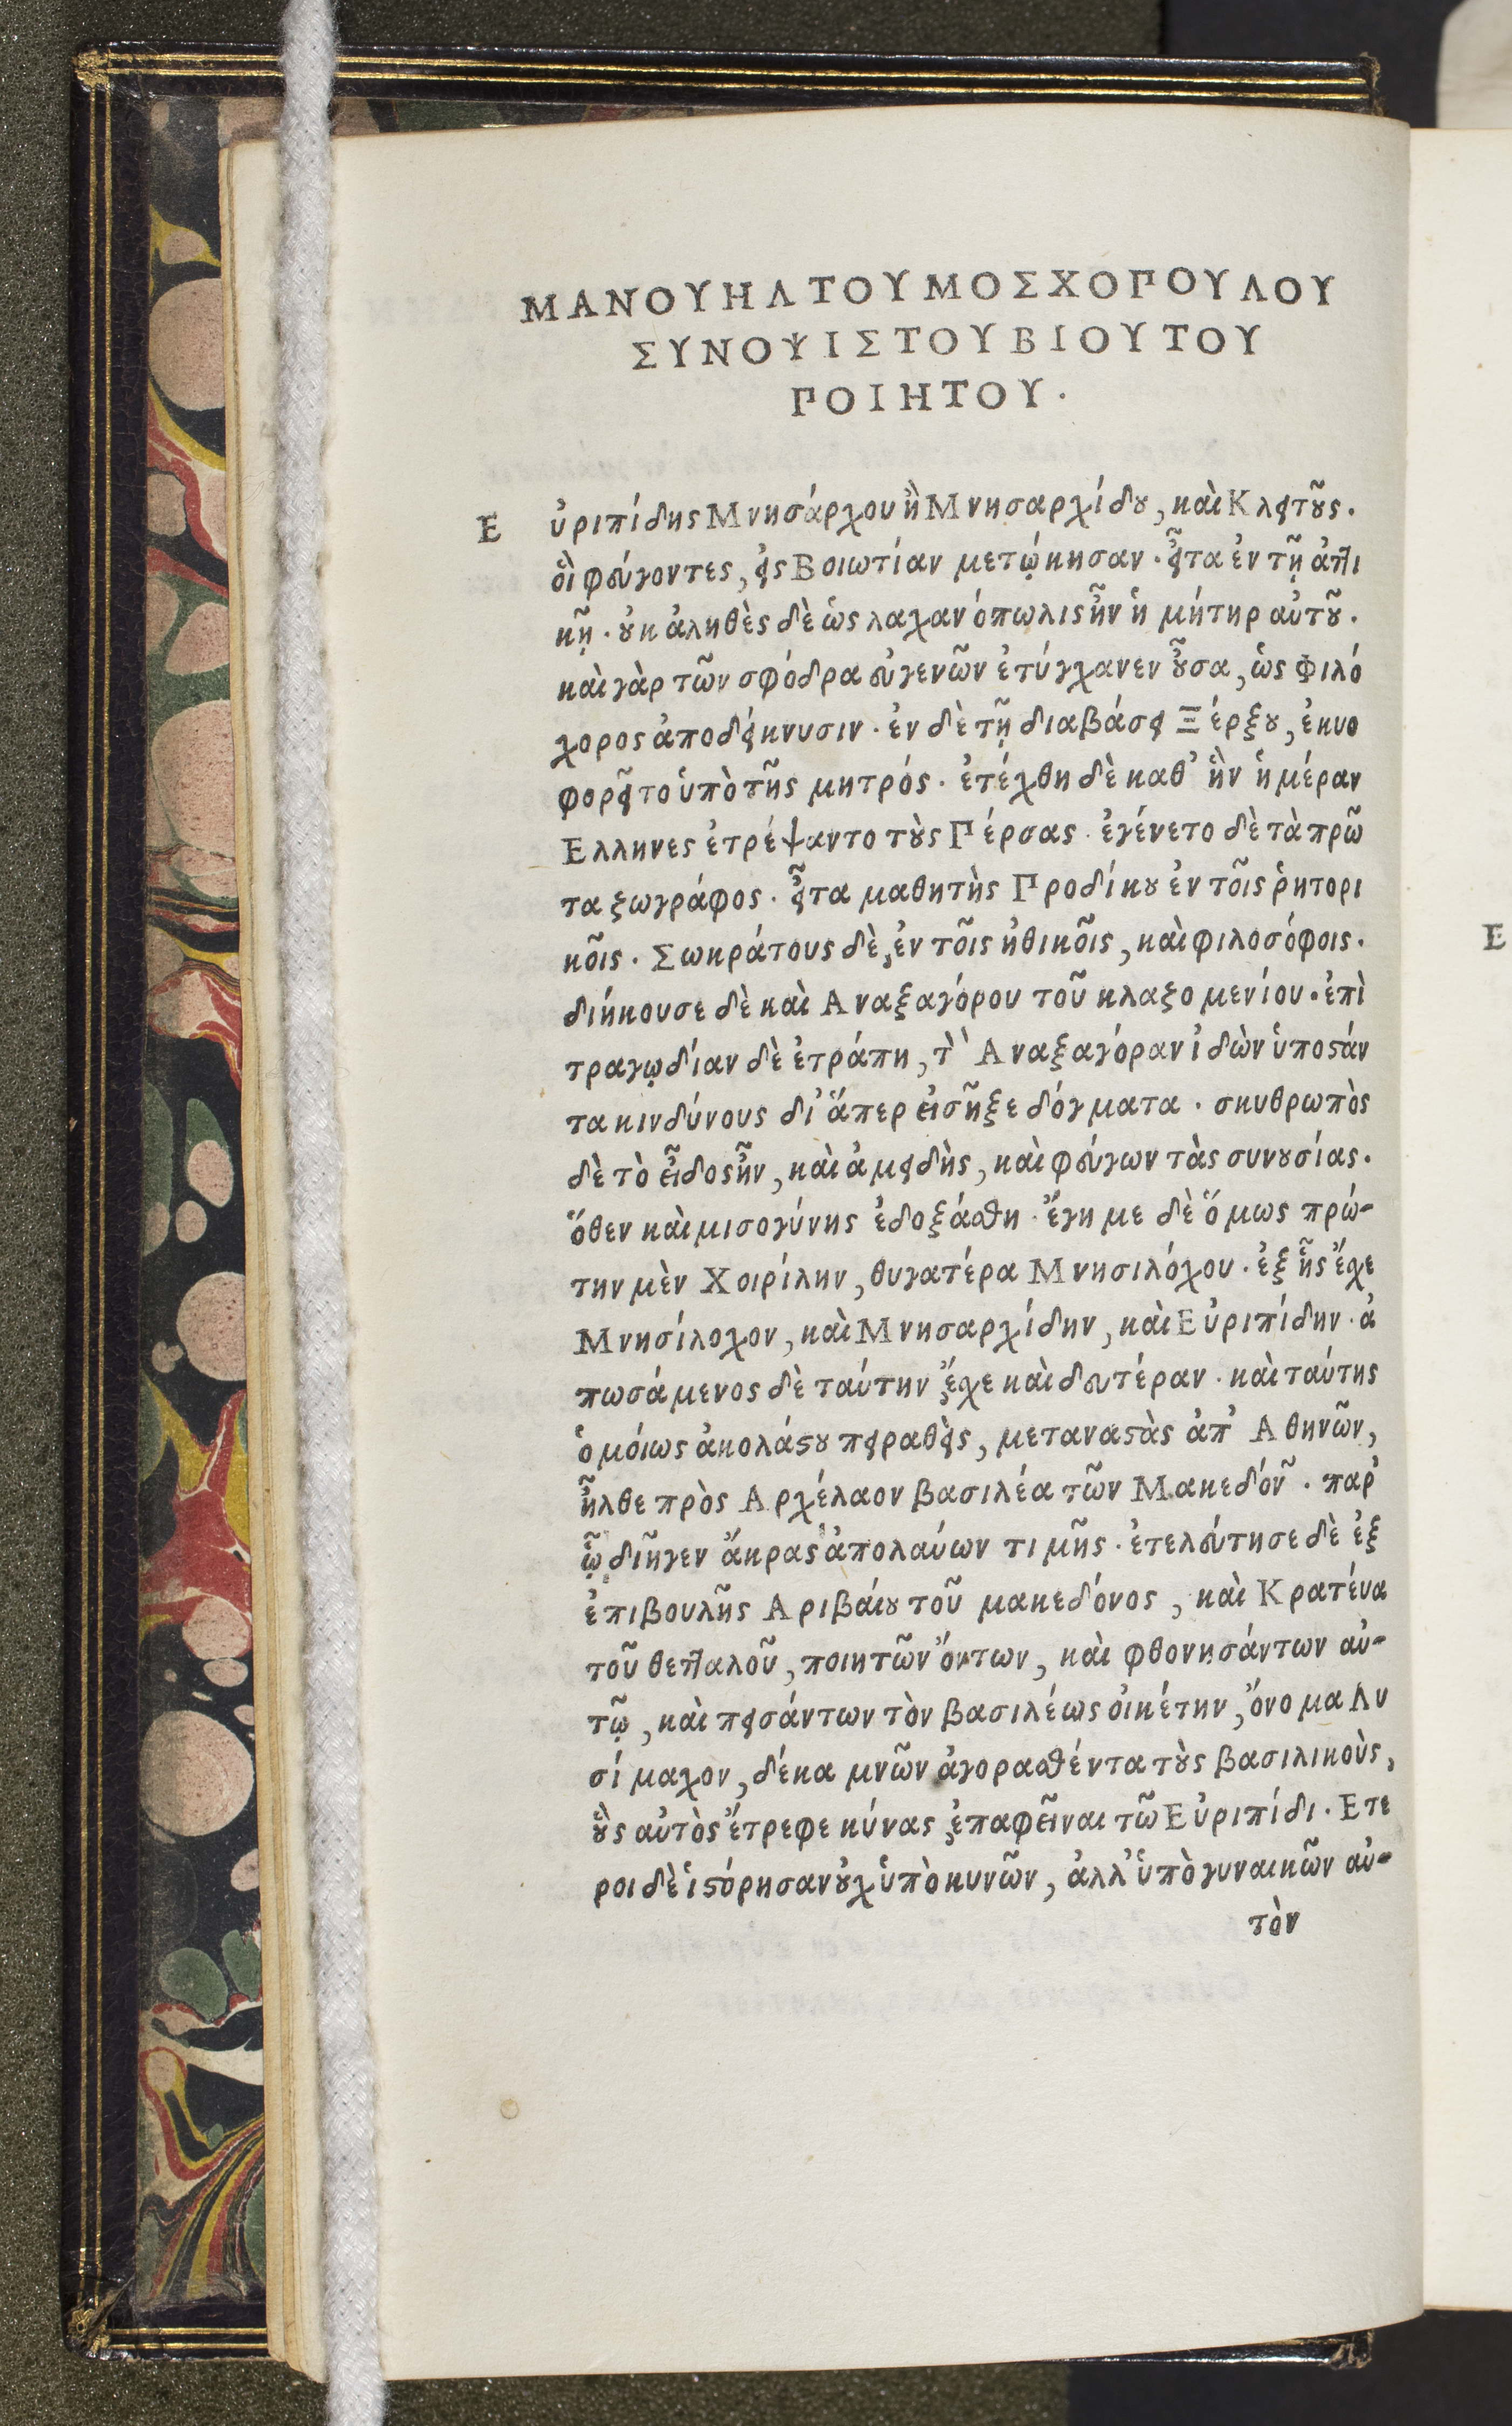 ΜΑΝΟΥΗΛ ΤΟΥ ΜΟΣΧΟΠΟΥΛΟΥ
ΣΥΝΟΨΙΣ ΤΟΥ ΒΙΟΥ ΤΟΥ
ΠΟΙΗΤΟΥ.
Εὐριπίδης Μνησάρχου ἢ Μνησαρχίδου, καὶ Κλειτοῦς.
οἳ φεύγοντες, εἰς Βοιωτίαν μετῴκησαν. εἶτα ἐν τῇ ἀττι
κῇ. οὐκ ἀληθὲς δὲ ὡς λαχανόπωλις ἦν ἡ μήτηρ αὐτοῦ.
καὶ γὰρ τῶν σφόδρα εὐγενῶν ἐτύγχανεν οὖσα, ὡς Φιλό
χορος ἀποδείκνυσιν. ἐν δὲ τῇ διαβάσει Ξέρξου, ἐκυο
φορεῖτο ὑπὸ τῆς μητρός. ἐτέχθη δὲ καθ' ἣν ἡμέραν
Ελληνες ἐτρέψαντο τοὺς Πέρσας. ἐγένετο δὲ τὰ πρῶ
τα ζωγράφος. εἶτα μαθητὴς Προδίκου ἐν τοῖς ῥητορι
κοῖς. Σωκράτους δὲ, ἐν τοῖς ἠθικοῖς, καὶ φιλοσόφοις.
διήκουσε δὲ καὶ Αναξαγόρου τοῦ κλαζομενίου. ἐπὶ
τραγῳδίαν δὲ ἐτράπη, τὸν Αναξαγόραν ἰδὼν ὑποστάν
τα κινδύνους δι' ἅπερ εἰσῆξε δόγματα. σκυθρωπὸς
δὲ τὸ εἶδος ἦν, καὶ ἀμειδὴς, καὶ φεύγων τὰς συνουσίας.
ὅθεν καὶ μισογύνης ἐδοξάσθη. ἔγημε δὲ ὅμως πρώ-
την μὲν Χοιρίλην, θυγατέρα Μνησιλόχου. ἐξ ἧς ἔχε
Μνησίλοχον, καὶ Μνησαρχίδην, καὶ Εὐριπίδην. ἀ
πωσάμενος δὲ ταύτην ἔχε καὶ δευτέραν. καὶ ταύτης
ὁμοίως ἀκολάστου πειραθεὶς, μεταναστὰς ἀπ' Αθηνῶν,
ἦλθε πρὸς Αρχέλαον βασιλέα τῶν Μακεδόνων. παρ'
ᾧ διῆγεν ἄκρας ἀπολαύων τιμῆς. ἐτελεύτησε δὲ ἐξ
ἐπιβουλῆς Αριβαίου τοῦ μακεδόνος, καὶ Κρατεύα
τοῦ θετταλοῦ, ποιητῶν ὄντων, καὶ φθονησάντων αὐ-
τῷ, καὶ πεισάντων τὸν βασιλέως οἰκέτην, ὄνομα Λυ
σίμαχον, δέκα μνῶν ἀγορασθέντα τοὺς βασιλικοὺς,
οὓς αὐτὸς ἔτρεφε κύνας ἐπαφεῖναι τῶ Εὐριπίδι. Ετε
ροι δὲ ἱστόρησαν οὐχ ὑπὸ κυνῶν, ἀλλ' ὑπὸ γυναικῶν αὐ-
τὸν
Ε